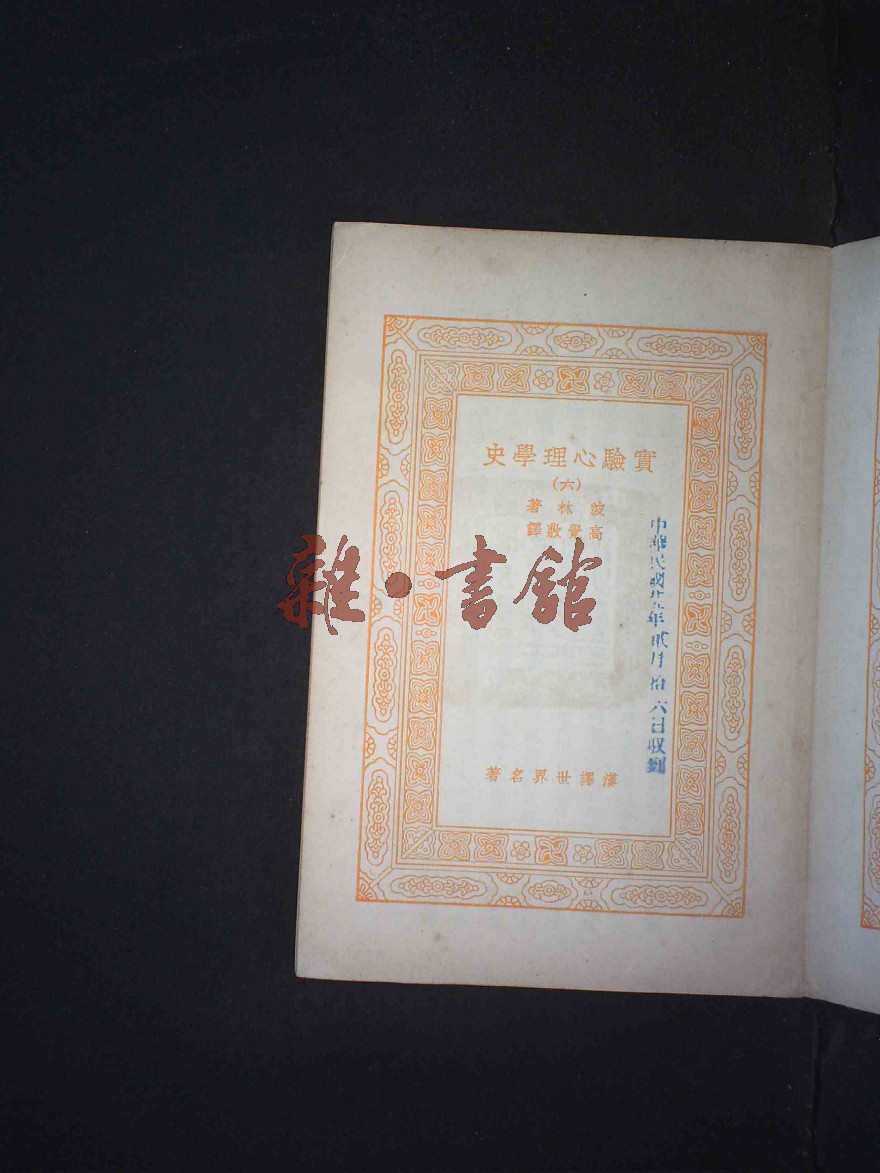 實驗心理學史
(六)
波林著
高覺敷譯
雜·書館
中華民國廿五年貳月拾六日收到
漢譯世界名著